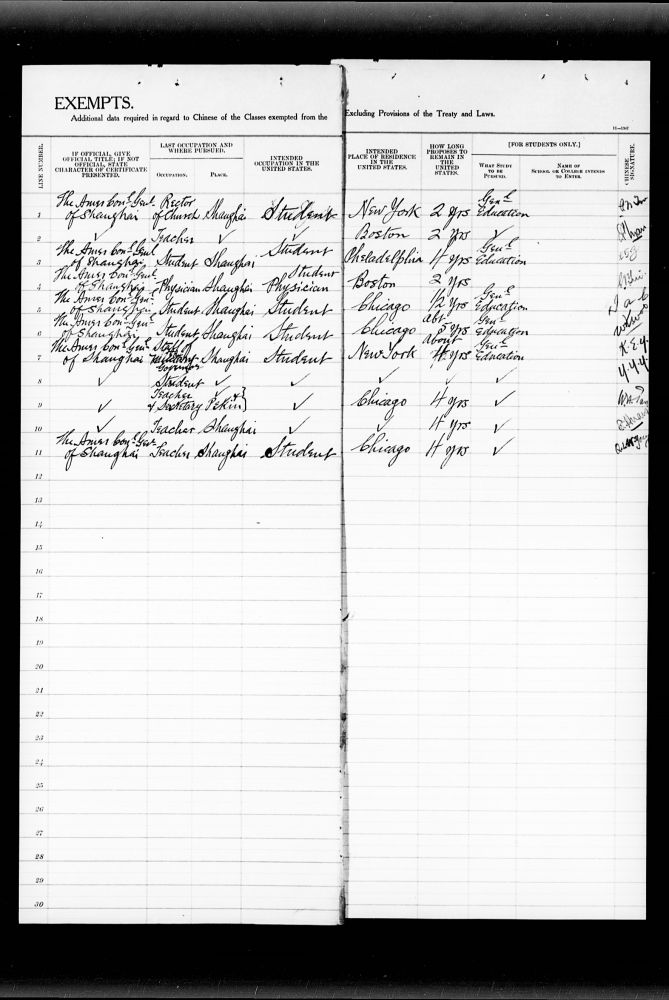 EXEMPTS.
Additional data required in regard to Chinese of the Classes exempted from the Excluding Provisions of the Treaty and Laws.
4
LINE NUMBER.
IF OFFICIAL, GIVE OFFICIAL TITLE; IF NOT OFFICIAL, STATE CHARACTER OF CERTIFICATE PRESENTED.
LAST OCCUPATION AND WHERE PURSUED.
OCCUPATION.
PLACE.
INTENDED OCCUPATION IN THE UNITED STATES.
INTENDED PLACE OF RESIDENCE IN THE UNITED STATES.
HOW LONG PROPOSES TO REMAIN IN THE UNITED STATES.
[FOR STUDENTS ONLY.]
WHAT STUDY TO BE PURSUED.
NAME OF SCHOOL OR COLLEGE INTENDS TO ENTER.
CHINESE SIGNATURE.
1 The Amer Conl Genl of Shanghai Rector of Church Shanghai Student New York 2 yrs Genl Education
2 ✓ Teacher ✓ ✓ Boston 2 yrs ✓
3 The Amer Conl Genl of Shanghai Student Shanghai Student Philadelphia 4 yrs Genl Education
4 The Amer Conl Genl of Shanghai Physician Shanghai Student Physician Boston 2 yrs
5 The Amer Conl Genl of Shanghai Student Shanghai Student Chicago 1/2 yrs Genl Education
6 The Amer Conl Genl of Shanghai Student Shanghai Student Chicago abt 5 yrs Genl Education
7 The Amer Conl Genl of Shanghai Staff of Military Governor Shanghai Student New York about 4 yrs Genl Education
8 ✓ Student ✓ ✓ ✓ ✓ ✓
9 ✓ Teacher & Secretary Pekin ✓ Chicago 4 yrs ✓
10 ✓ Teacher Shanghai ✓ ✓ 4 yrs ✓
11 The Amer Conl Genl of Shanghai Teacher Shanghai Student Chicago 4 yrs ✓
K.E.Y.
Y.Y.Y.
12
13
14
15
16
17
18
19
20
21
22
23
24
25
26
27
28
29
30